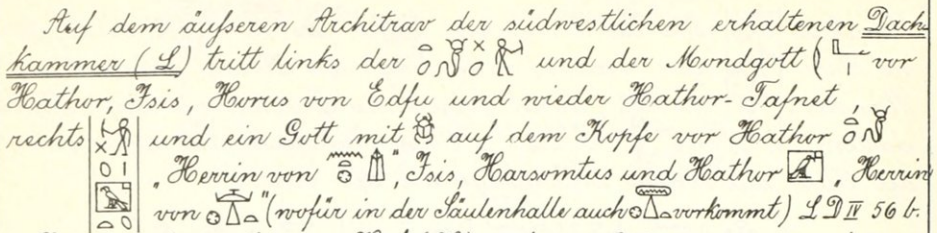 Auf dem äußeren Architrav der südwestlichen erhaltenen Dach-
kammer (L) tritt links der und der Mondgott ( vor
Hathor, Isis, Horus von Edfu und wieder Hathor-Tafnet,
rechts und ein Gott mit auf dem Kopfe vor Hathor
„Herrin von “, Isis, Harsomtus und Hathor „Herrin
von “ (wofür in der Säulenhalle auch vorkommt) LD IV 56 b.